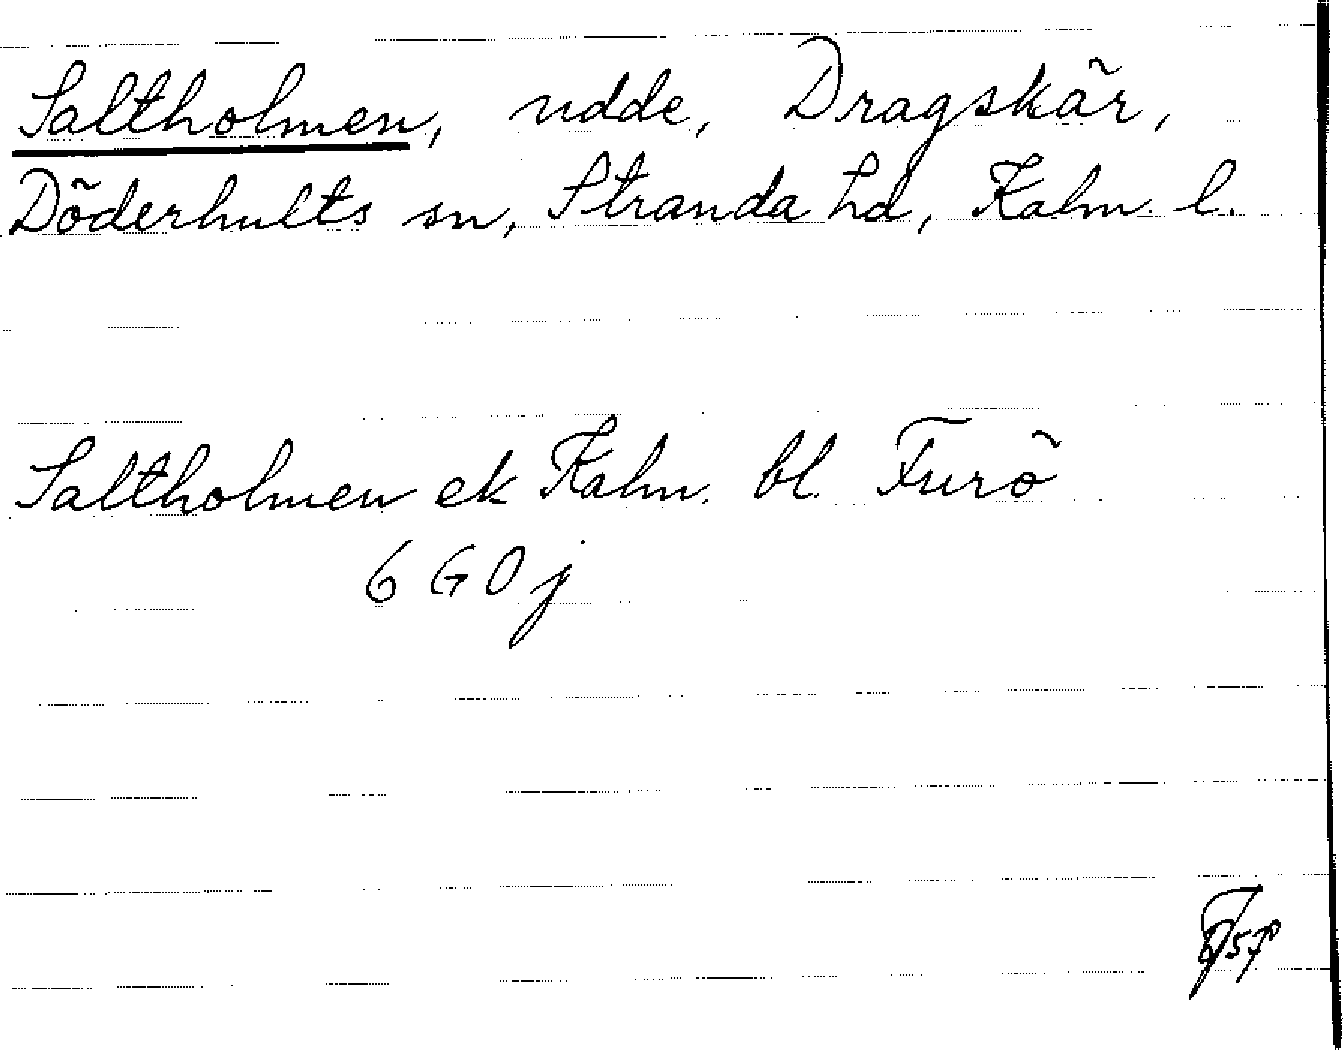 Saltholmen, udde, Dragskär,
Döderhults sn, Stranda hd, Kalm. l.
Saltholmen ek Kalm. bl. Furö
6 G 0 j